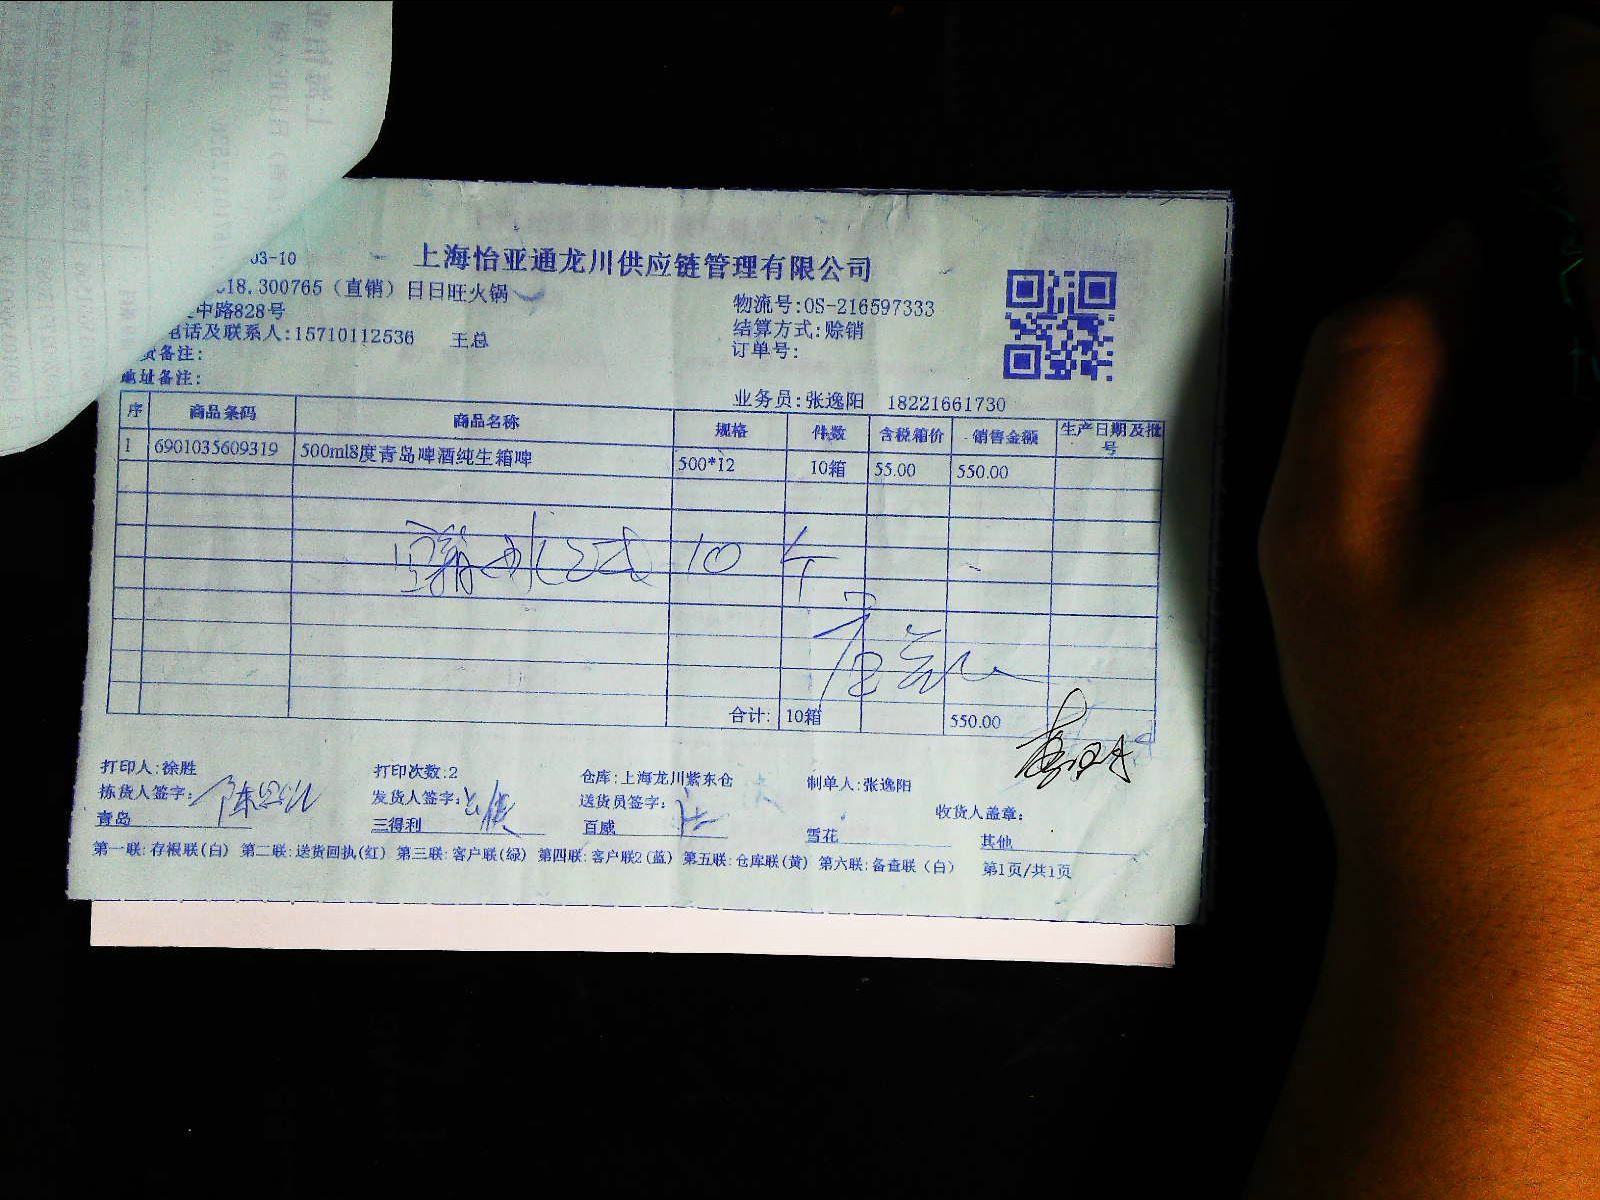 03-10 上海怡亚通龙川供应链管理有限公司
18.300765（直销）日日旺火锅
物流号:OS-216597333
中路828号
结算方式:赊销
电话及联系人:15710112536 王总
订单号:
备注:
地址备注:
业务员:张逸阳 18221661730
序 商品条码 商品名称 规格 件数 含税箱价 销售金额 生产日期及批号
1 6901035609319 500ml8度青岛啤酒纯生箱啤 500*12 10箱 55.00 550.00
10
合计: 10箱 550.00
打印人:徐胜 打印次数:2 仓库:上海龙川紫东仓 制单人:张逸阳
拣货人签字: 发货人签字: 送货员签字: 收货人盖章:
青岛 三得利 百威 雪花 其他
第一联:存根联(白) 第二联:送货回执(红) 第三联:客户联(绿) 第四联:客户联2(蓝) 第五联:仓库联(黄) 第六联:备查联（白） 第1页/共1页